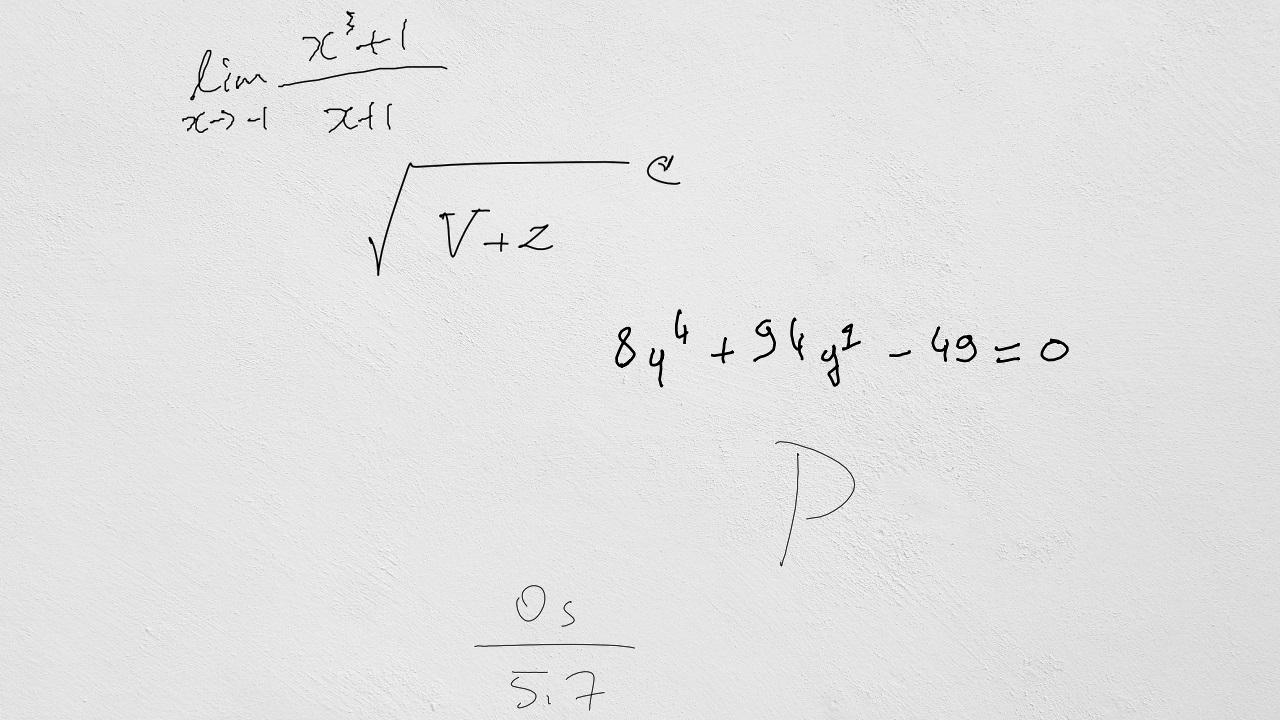 \lim_{x \to -1} \frac{x^3+1}{x+1}
\sqrt{V+z} @
8y^4 + 94y^1 - 49 = 0
P
\frac{0s}{5.7}